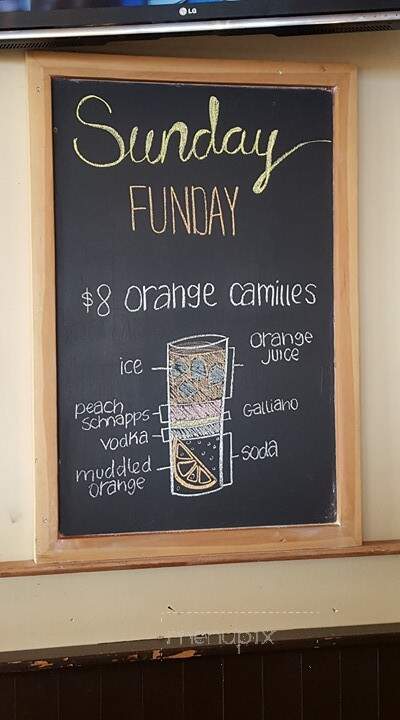 LG
Sunday
FUNDAY
$8 orange camilles
ice
orange
juice
peach
schnapps
Galliano
vodka
soda
muddled
orange
menupix